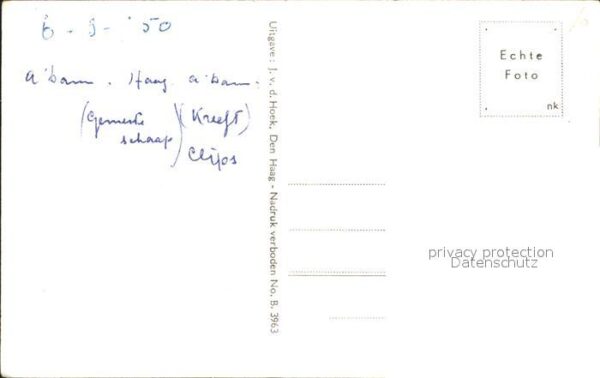 6 - 3 - '50
A'dam. Haag. A'dam.
(Gemeente (Kreeft)
schaap)
Uitgave: J. v. d. Hoek, Den Haag - Nadruk verboden No. B. 3963
Echte
Foto
nk
privacy protection
Datenschutz